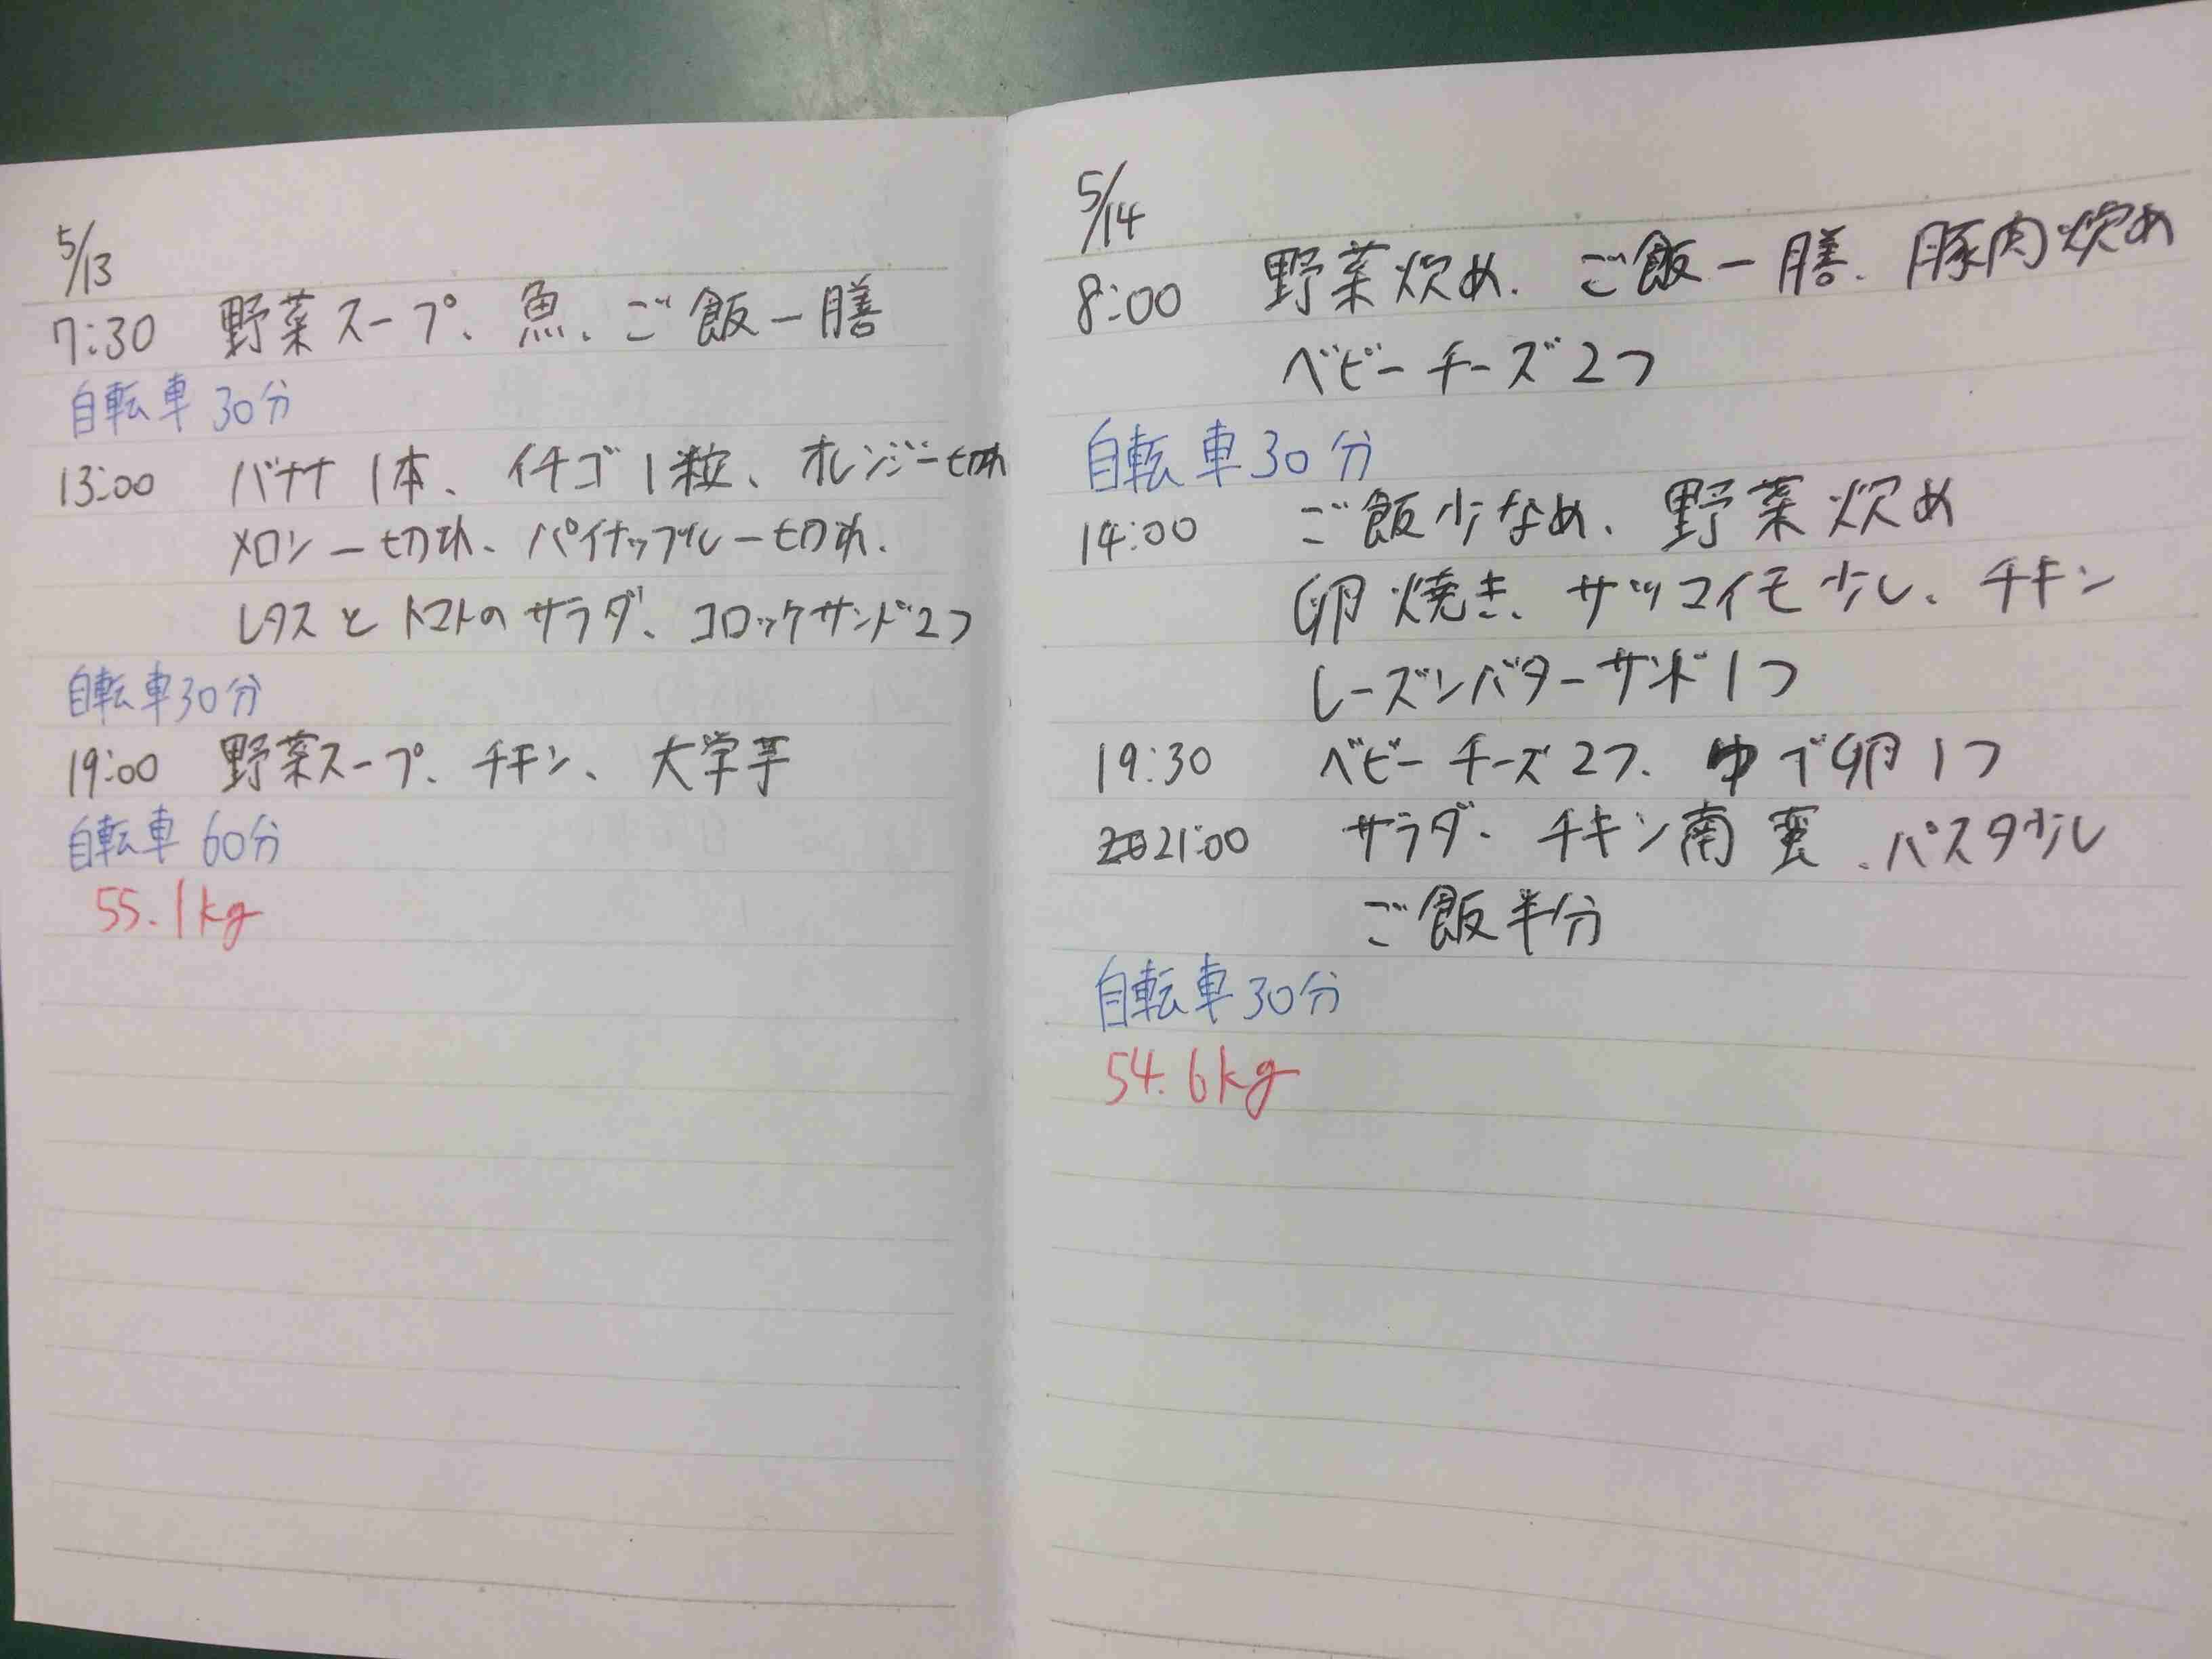 5/13
7:30 野菜スープ、魚、ご飯一膳
自転車 30分
13:00 バナナ 1本、イチゴ1粒、オレンジ一切れ
メロン一切れ、パイナップル一切れ、
レタスとトマトのサラダ、コロッケサンド2つ
自転車30分
19:00 野菜スープ、チキン、大学芋
自転車 60分
55.1kg
5/14
8:00 野菜炊め、ご飯一膳、豚肉炊め
ベビーチーズ2つ
自転車30分
14:00 ご飯少なめ、野菜炊め
卵焼き、サツマイモ少し、チキン
レーズンバターサンド1つ
19:30 ベビーチーズ2つ、ゆで卵1つ
21:00 サラダ、チキン南蛮、パスタ少し
ご飯半分
自転車30分
54.6kg